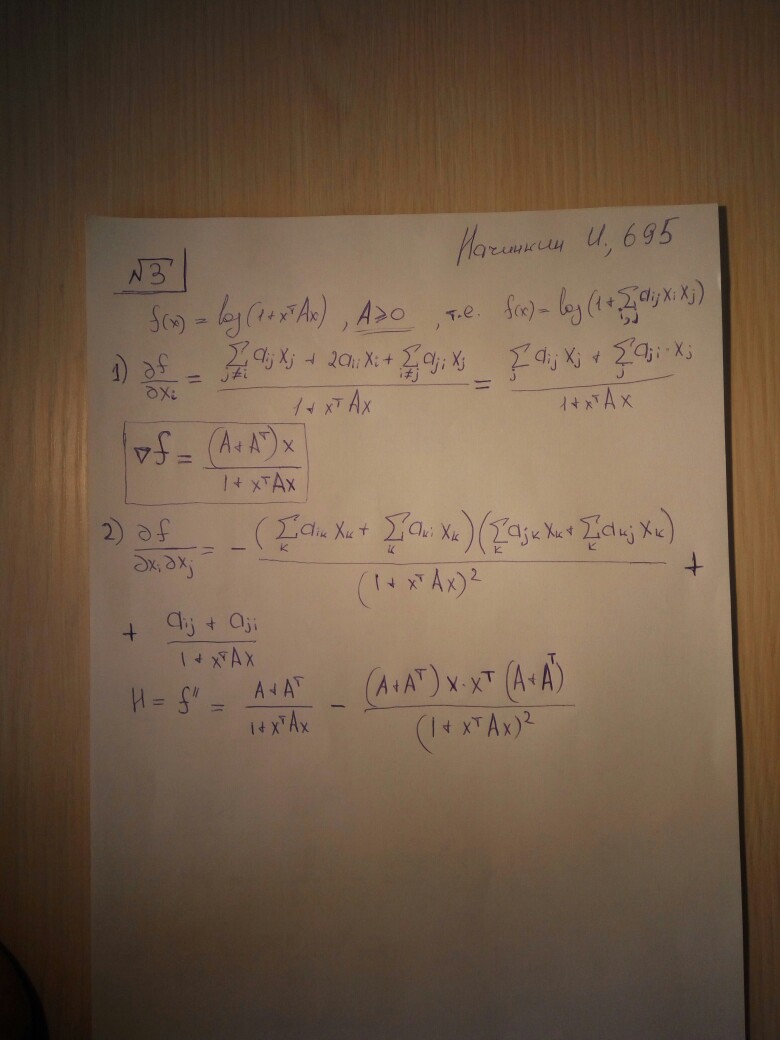 Начинкин И., 695
№3
f(x) = log(1+xᵀAx), A⩾0, т.е. f(x) = log(1+∑_{i,j} a_{ij} x_i x_j)
1) ∂f/∂x_i = (∑_{j≠i} a_{ij} x_j + 2a_{ii} x_i + ∑_{i≠j} a_{ji} x_j)/(1+xᵀAx) = (∑_j a_{ij} x_j + ∑_j a_{ji}·x_j)/(1+xᵀAx)
∇f = (A+Aᵀ)x/(1+xᵀAx)
2) ∂f/∂x_i∂x_j = −(∑_k a_{ik} x_k + ∑_k a_{ki} x_k)(∑_k a_{jk} x_k + ∑_k a_{kj} x_k)/(1+xᵀAx)² +
+ (a_{ij} + a_{ji})/(1+xᵀAx)
H = f'' = (A+Aᵀ)/(1+xᵀAx) − (A+Aᵀ)x·xᵀ(A+Aᵀ)/(1+xᵀAx)²